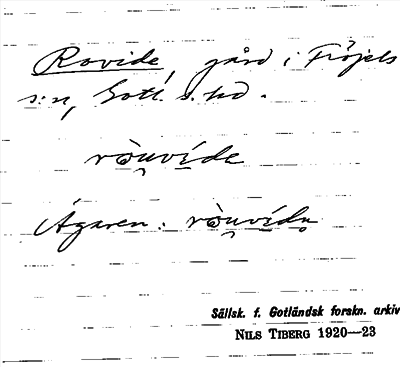 Rovide, gård i Fröjels
s:n, Gotl. s. hd.
ròu̯víde
Ägaren: ròu̯vídu̥
Sällsk. f. Gotländsk forskn. arkiv
NILS TIBERG 1920—23